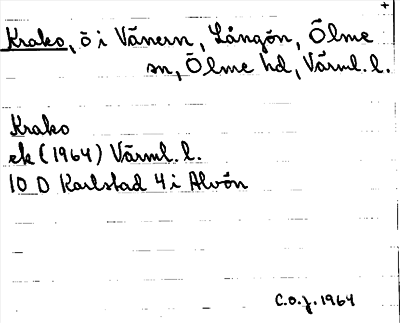 +
Krako, ö i Vänern, Långön, Ölme
sn, Ölme hd, Värml. l.
Krako
ek (1964) Värml. l.
10 D Karlstad 4 i Alvön
C.O.J. 1964